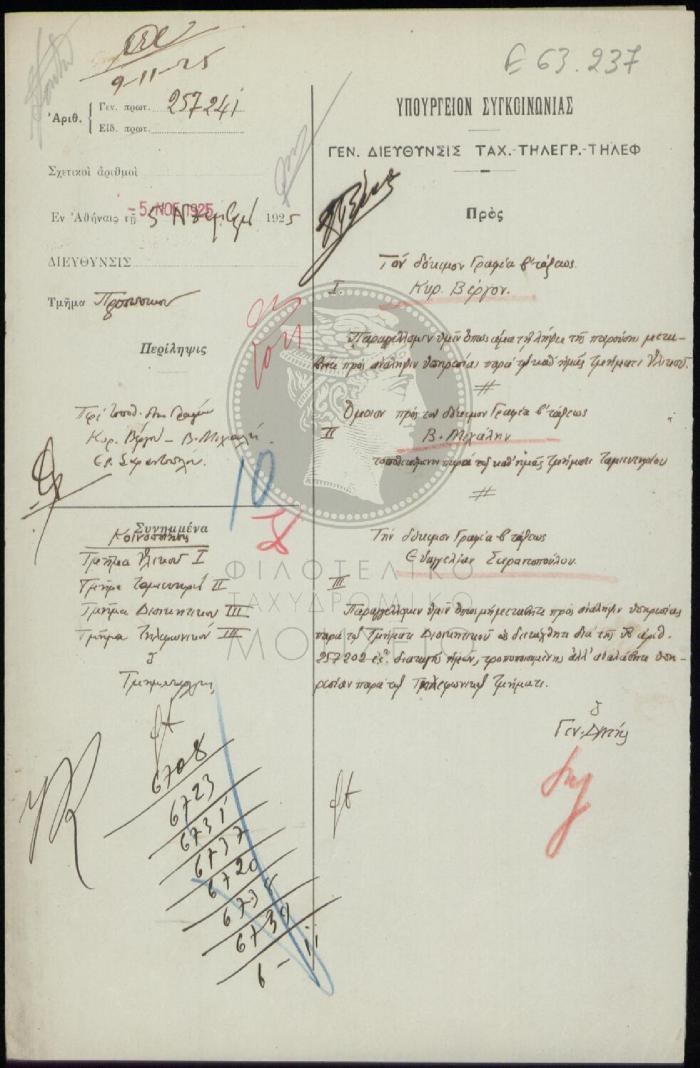 9-11-25
Ε 63.237
Ἀριθ.
Γεν. πρωτ. 257241
Εἰδ. πρωτ.
Σχετικοὶ ἀριθμοὶ
Ἐν Ἀθήναις τῇ 5 Νοεμβρίου 1925
-5 ΝΟΕ 1925
ΔΙΕΥΘΥΝΣΙΣ
Τμῆμα Προσωπικοῦ
Περίληψις
Κυρ. Βέργου - Β. Μιχάλη
10
Συνημμένα
Κοινοποίησις
Τμῆμα Ὑλικοῦ I
Τμῆμα Ταμιευτηρίου II
Τμῆμα Διοικητικοῦ III
Τμῆμα Τηλεφωνικοῦ III
Ὁ
Τμηματάρχης
6708
6723
6731
6737
6720
6738
6739
6-11
ΥΠΟΥΡΓΕΙΟΝ ΣΥΓΚΟΙΝΩΝΙΑΣ
ΓΕΝ. ΔΙΕΥΘΥΝΣΙΣ ΤΑΧ.-ΤΗΛΕΓΡ.-ΤΗΛΕΦ
Πρὸς
Τὸν δόκιμον Γραφέα β' τάξεως
I. Κυρ. Βέργον.
Παραγγέλλομεν ὑμῖν ὅπως ἅμα τῇ λήψει τῆς παρούσης μετα-
βῆτε πρὸς ἀνάληψιν ὑπηρεσίας παρὰ τῷ καθ' ἡμᾶς τμήματι Ὑλικοῦ.
Ὅμοιον πρὸς τὸν δόκιμον Γραφέα β' τάξεως
II Β. Μιχάλην
τοποθετούμενον παρὰ τῷ καθ' ἡμᾶς τμήματι Ταμιευτηρίου
Τὴν δόκιμον Γραφέα β' τάξεως
Εὐαγγελίαν Σαραντοπούλου.
III
Παραγγέλλομεν ὑμῖν ὅπως μὴ μεταβῆτε πρὸς ἀνάληψιν ὑπηρεσίας
παρὰ τῷ Τμήματι Διοικητικοῦ ὡς διετάχθητε διὰ τῆς ὑπ' ἀριθ.
257202 ἐ.ἔ. διαταγῆς ἡμῶν, τροποποιουμένης ἀλλ' ἀναλάβητε ὑπη-
ρεσίαν παρὰ τῷ Τηλεφωνικῷ τμήματι.
Ὁ
Γεν. Δ/ντής
ΦΙΛΟΤΕΛΙΚΟ
ΤΑΧΥΔΡΟΜΙΚΟ
ΜΟΥΣΕΙΟ